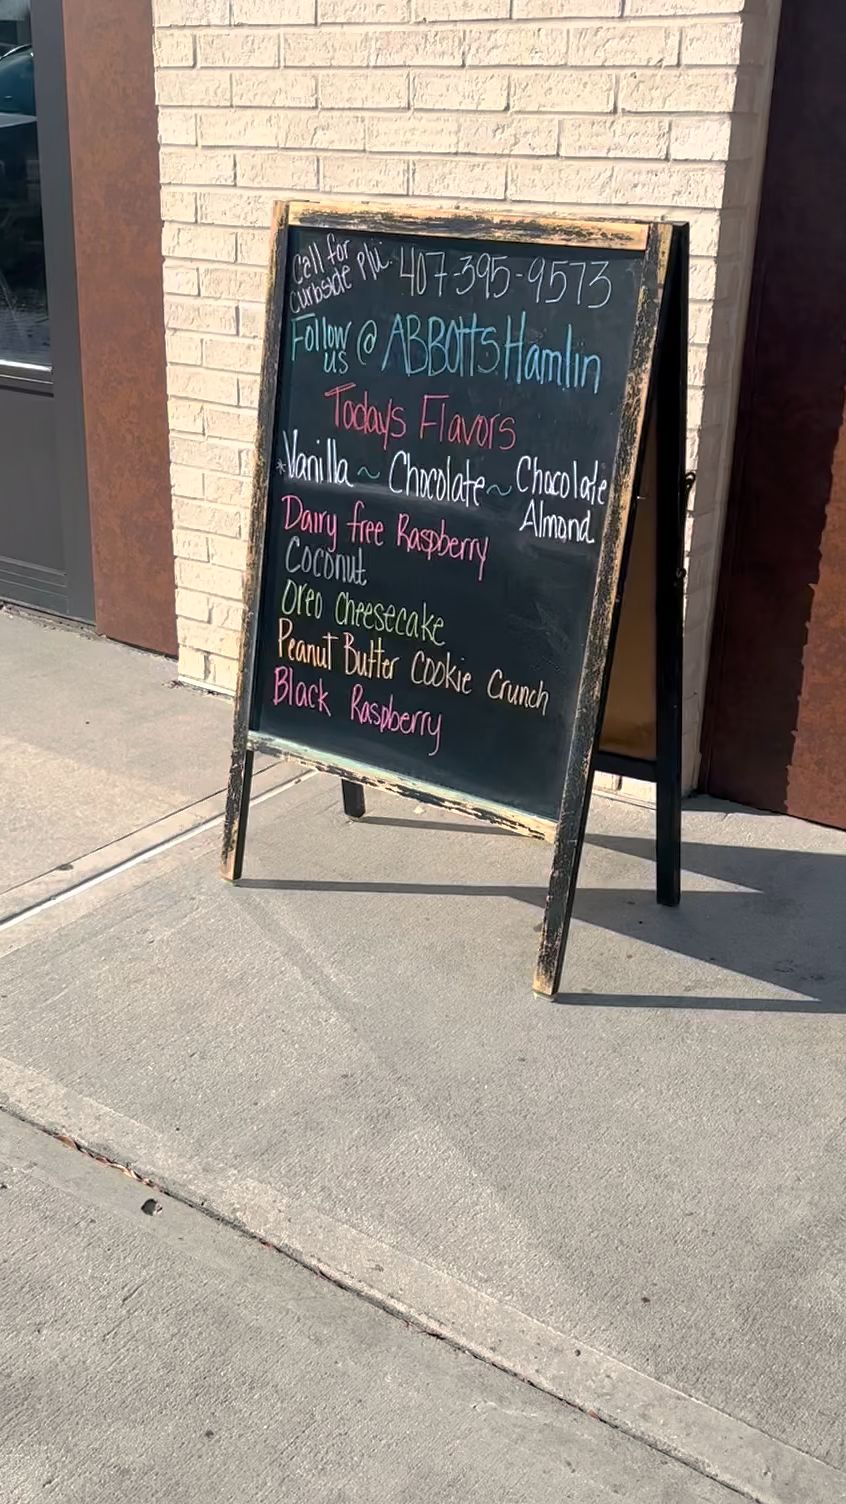 Call for
curbside p/u. 407-395-9573
Follow us @ ABBOTTS Hamlin
Todays Flavors
*Vanilla ~ Chocolate ~ Chocolate Almond
Dairy free Raspberry
Coconut
Oreo Cheesecake
Peanut Butter Cookie Crunch
Black Raspberry